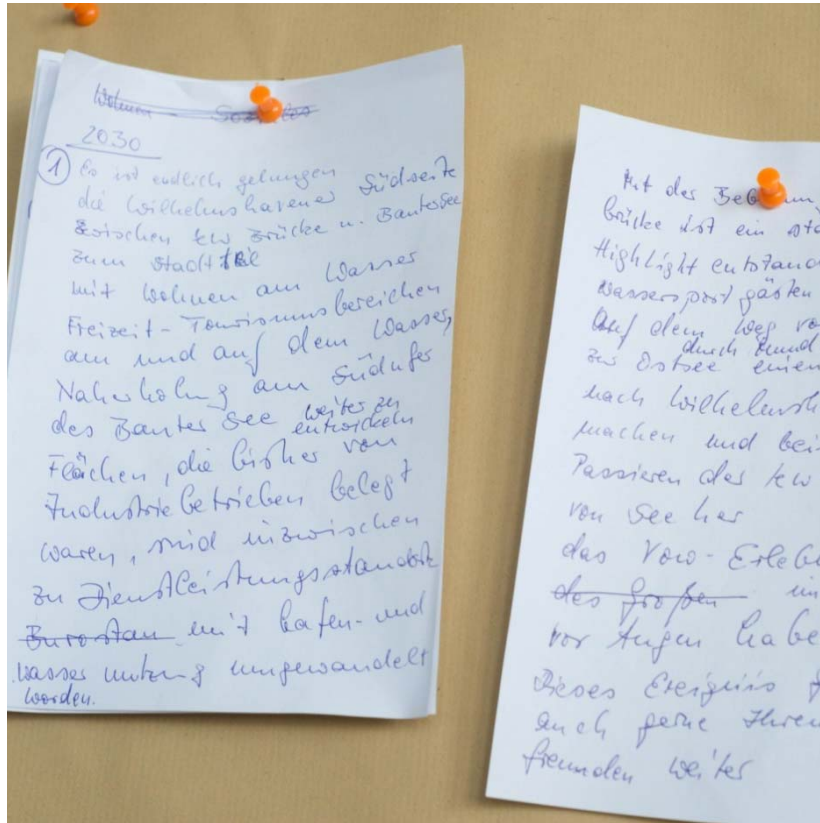 Wohnen Soziales
2030
① Es ist endlich gelungen
die Wilhelmshavener Südseite
zwischen KW Brücke u. Bantersee
zum Stadtteil
mit Wohnen am Wasser
Freizeit-Tourismusbereichen
am und auf dem Wasser,
Naherholung am Südufer
des Banter See weiter zu
entwickeln
Flächen, die bisher von
Industriebetrieben belegt
waren, sind inzwischen
zu Dienstleistungsstandorte
mit hafen- und
wasser nutzung umgewandelt
worden.
Mit der
brücke ist ein
Highlight
wassersport gästen
Auf dem Weg
durch
zur Ostsee einen
nach
machen und
Passieren der KW
von See her
das
des großen
vor Augen
Dieses Ereignis
auch gerne Ihren
freunden weiter